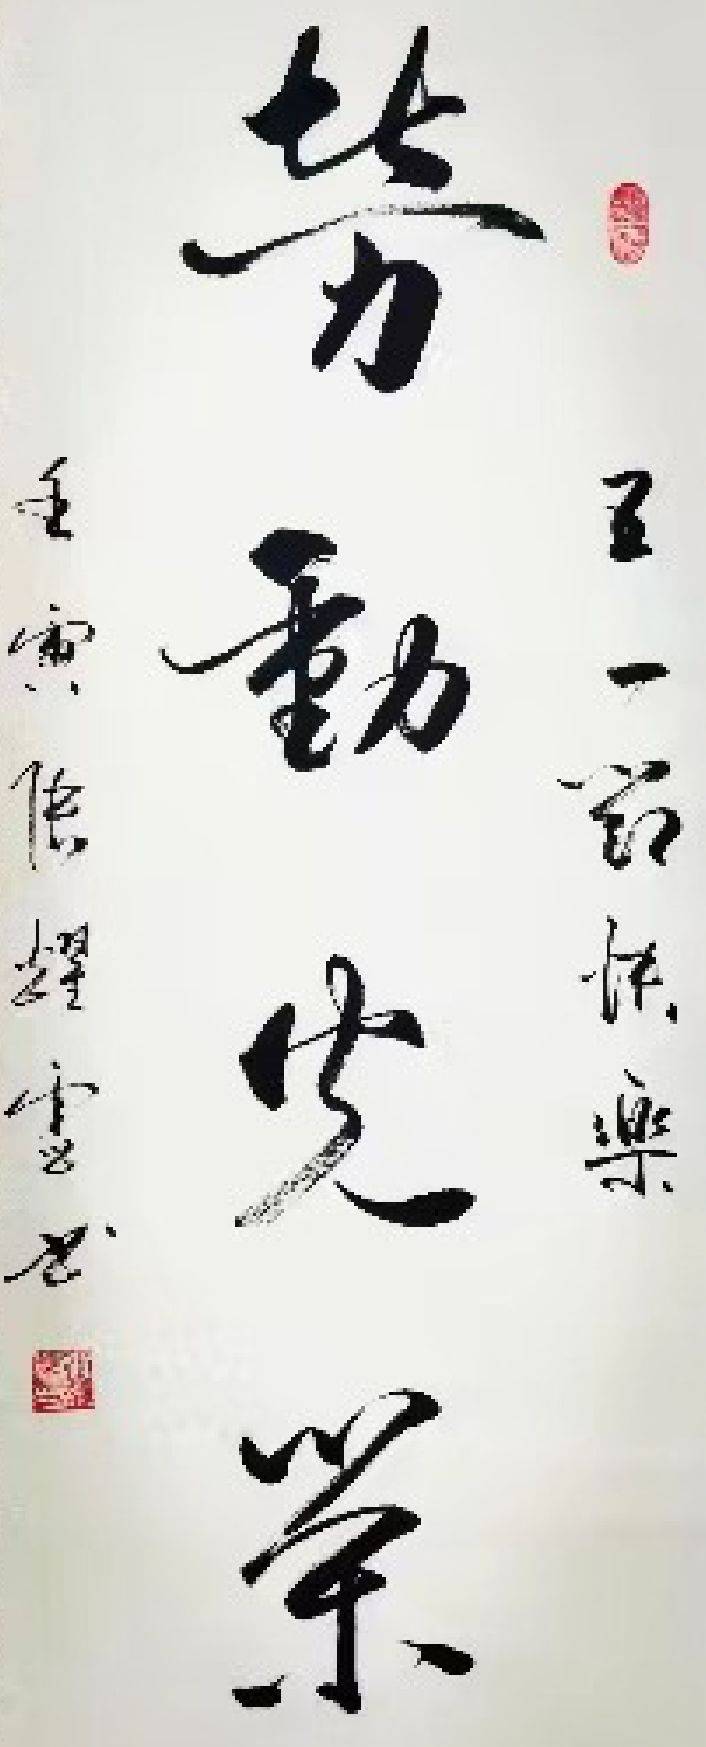 五一節快樂
勞動光榮
壬寅張耀雲書